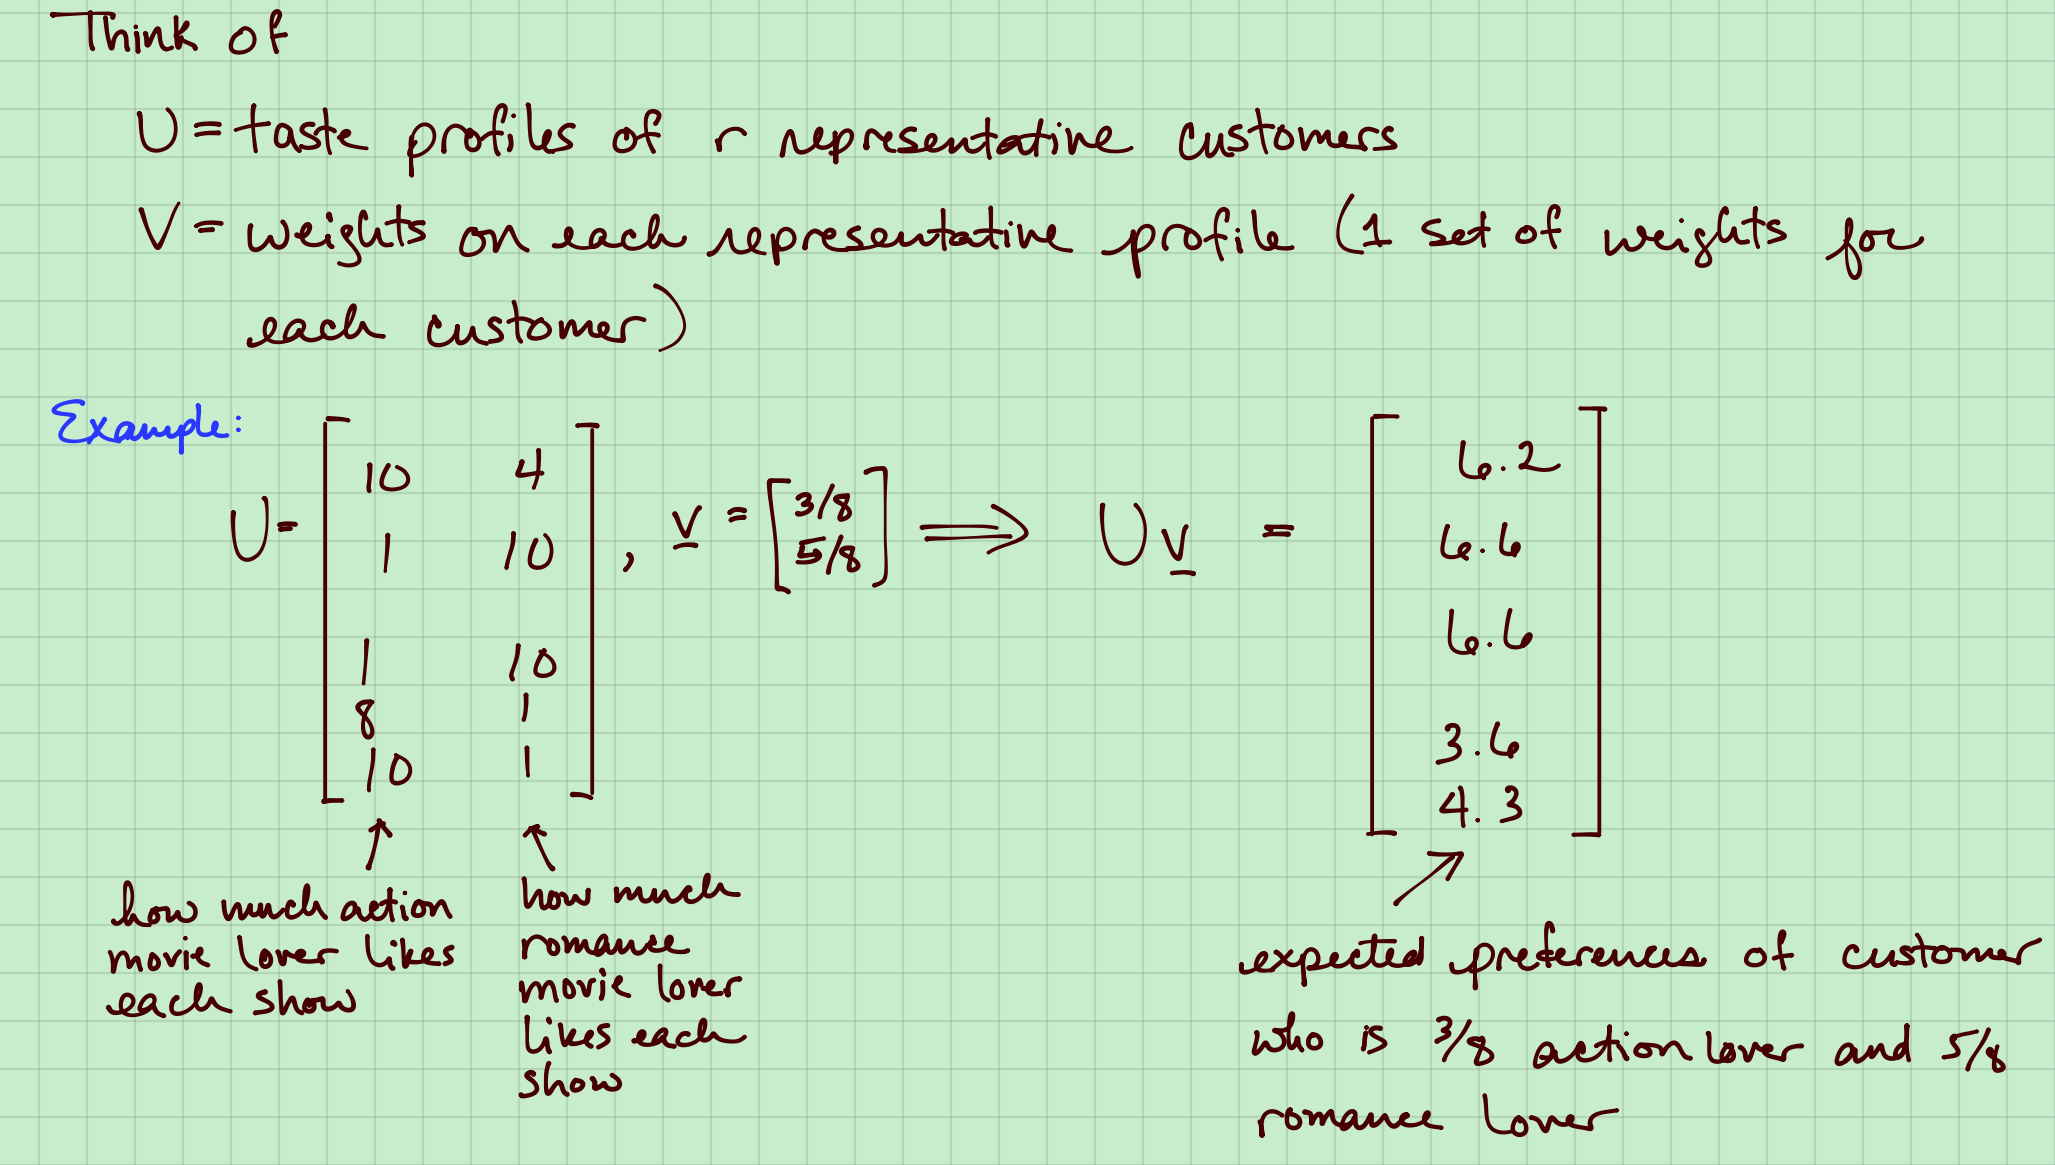 Think of
U = taste profiles of r representative customers
V = weights on each representative profile (1 set of weights for
each customer)
Example:
U = [10 4
1 10
1 10
8 1
10 1], v = [3/8
5/8] ⟹ U v = [6.2
6.6
6.6
3.6
4.3]
how much action
movie lover likes
each show
how much
romance
movie lover
likes each
show
expected preferences of customer
who is 3/8 action lover and 5/8
romance lover